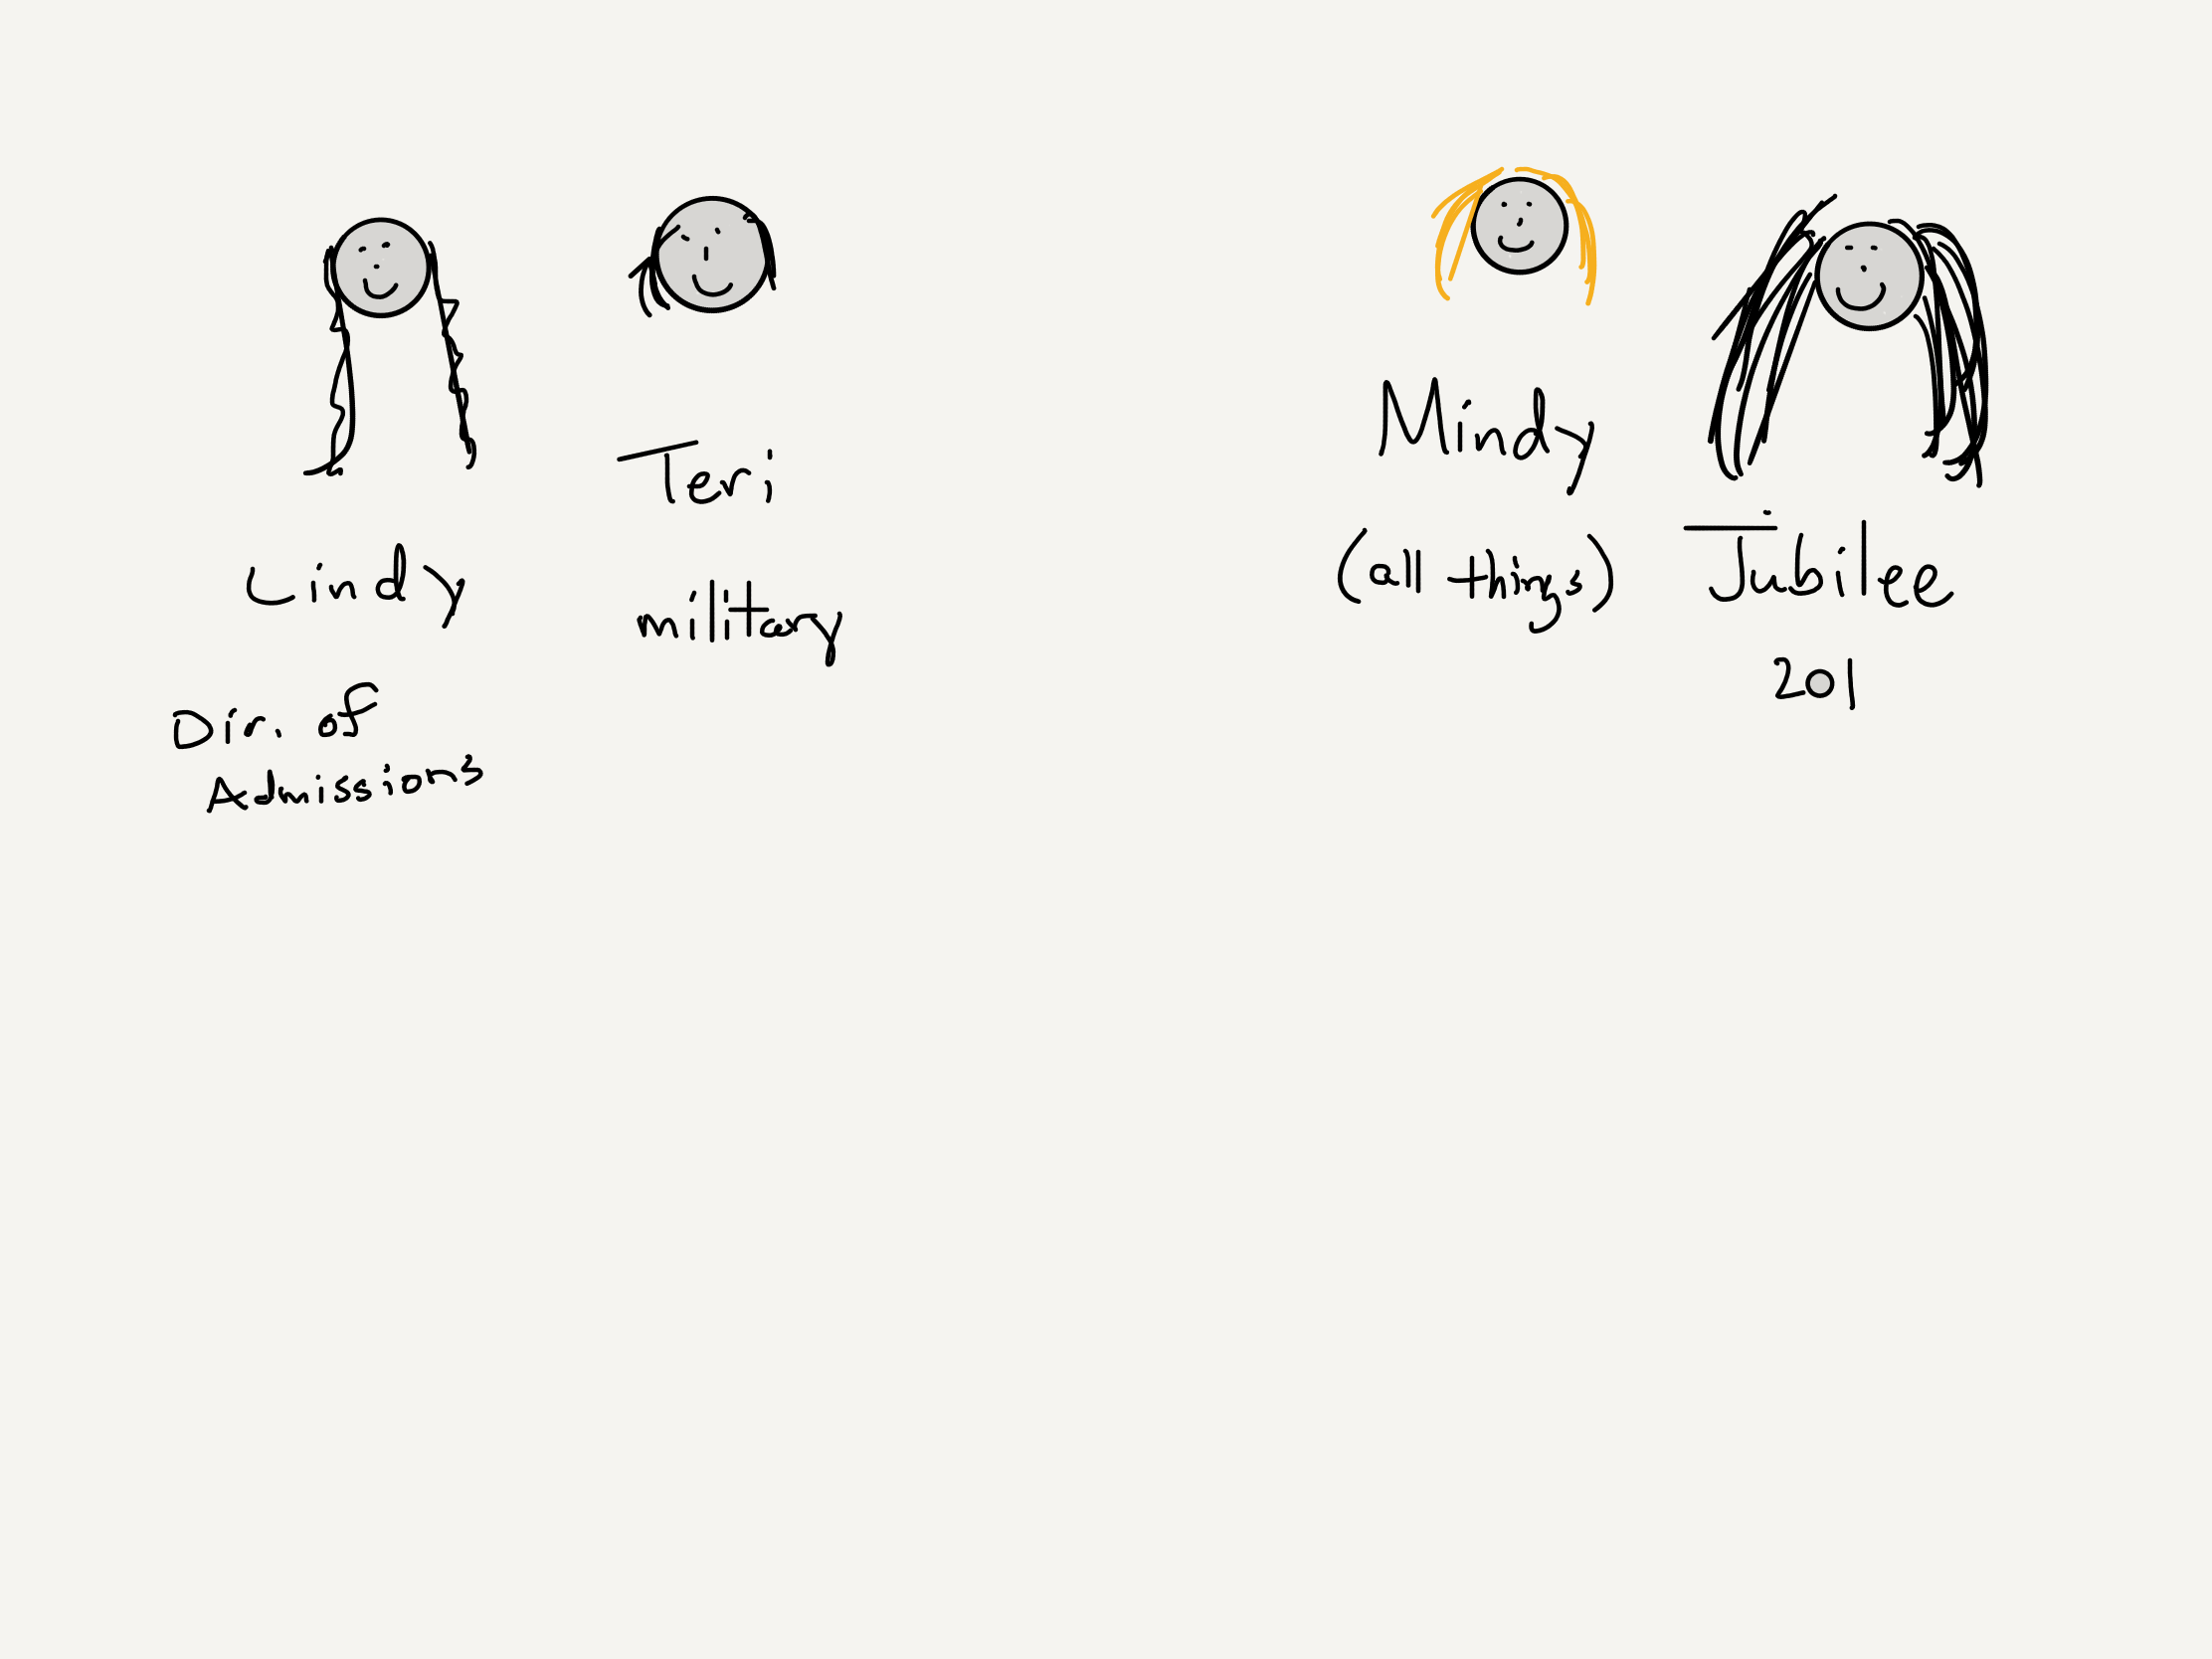 Lindy
Dir. of
Admissions
Teri
military
Mindy
(all things)
Jubilee
201